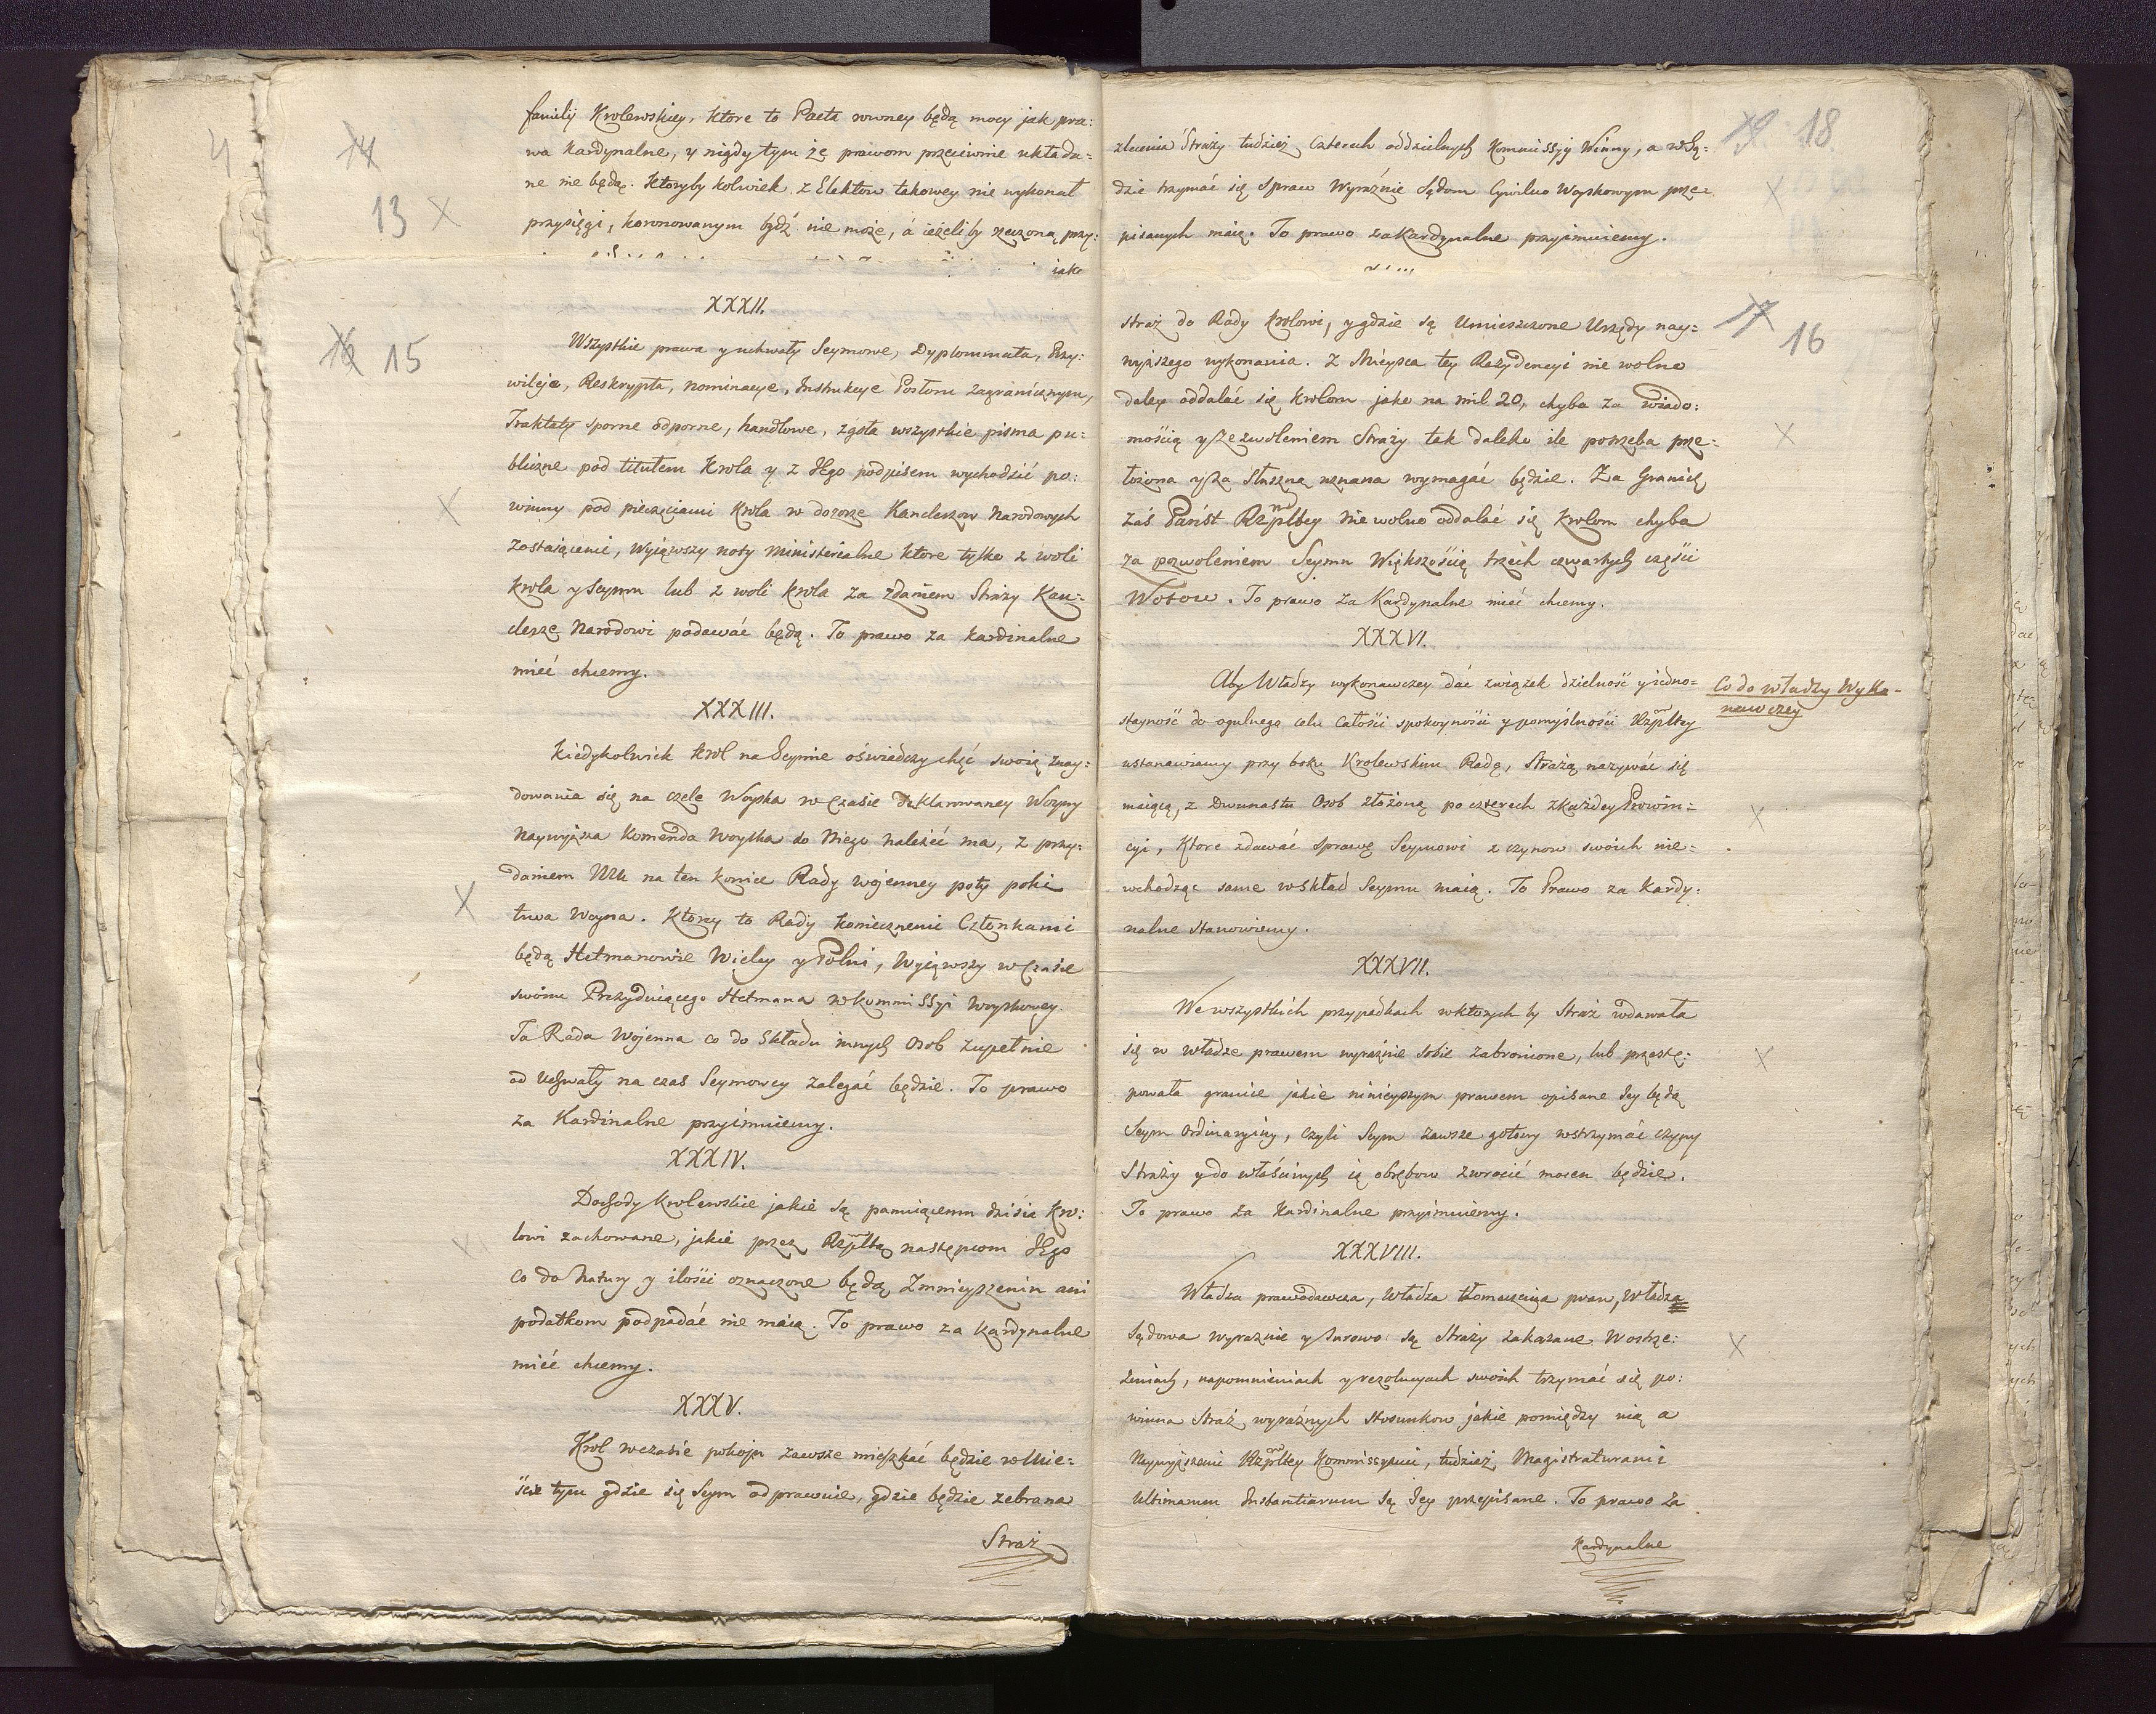 familij Krolewskiey, ktore to Pacta rowney będą mocy jak pra:
wa kardynalne, y nigdy tym że prawom przeciwnie układa:
ne nie będą. Ktoryby kolwiek z Elektow takowey nie wykonał
przysięgi, koronowanym bydź nie może, á ieżeliby rzeczoną przy:
iako
14
13
XXXII.
16 15
Wszystkie prawa y uchwały Seymowe, Dyplommata, Przy:
wileje, Reskrypta, nominacye, Instrukcye Posłom zagranicznym,
Traktaty sporne odporne, handlowe, zgoła wszystkie pisma pu:
bliczne pod titułem Krola y z JEgo podpisem wychodzić po:
winny pod pieczęciami Krola w dozorze Kanclerzow Narodowych
zostaiącemi, Wyiąwszy noty Ministerialne ktore tylko z woli
Krola y Seymu lub z woli Krola za zdaniem Straży Kan:
clerze Narodowi podawać będą. To prawo za kardinalne
mieć chcemy.
XXXIII.
Kiedykolwiek Krol na Seymie oświadczy chęć swoią znay:
dowania się na czele Woyska w czasie deklarowaney Woyny
Naywyższa Komenda Woyska do Niego należeć ma, z przy:
daniem Mu na ten koniec Rady wojenney poty poki
trwa Woyna. Ktorey to Rady koniecznemi Członkami
będą Hetmanowie Wielcy y Polni, Wyiąwszy w Czasie
swoim Prezyduiącego Hetmana w kommissyi Woyskowey.
Ta Rada Wojenna co do składu innych Osob zupełnie
od Uchwały na czas Seymowey zalegać będzie. To prawo
za Kardinalne przyimuiemy.
XXXIV.
Dochody Krolewskie jakie są panuiącemu dziśia Kro:
lowi zachowane, jakie przez Rzpltę następcom JEgo
co do Natury y ilości oznaczone będą Zmnieyszeniu ani
podatkom podpadać nie maią. To prawo za Kardynalne
mieć chcemy.
XXXV.
Krol w czasie pokoju zawsze mieszkać będzie w Mie:
ście tym gdzie się Seym odprawuie, gdzie będzie zebrana
Straż
19 18.
zlecenia Straży tudzież czterech oddzielnych Kommissyi Winny, a w Są:
dzie trzymać się Spraw Wyraźnie Sądom Cywilno Woyskowym prze:
pisanych maią. To prawo za Kardynalne przyimuiemy.
17 16
Straż do Rady Krolowi, y gdzie są Umieszczone Urzędy nay:
wyższego wykonania. Z Mieysca tey Rezydencyi nie wolno
daley oddalać się Krolom jako na mil 20, chyba za wiado:
mością y zezwoleniem Straży tak daleko ile potrzeba prze:
łożona y za słuszną uznana wymagać będzie. Za Granicę
zaś Państ Rzpltey nie wolno oddalać się Krolom chyba
za pozwoleniem Seymu Większością trzech czwartych części
Wotow. To prawo za Kardynalne mieć chcemy.
XXXVI.
Aby Władzy wykonawczey dać związek dzielność y iedno:
stayność do ogulnego celu całości spokoyności y pomyślności Rzpltey
ustanawiamy przy boku Krolewskim Radę, Strażą nazywać się
maiącą, z Dwunastu Osob złożoną po czterech z każdey Prowin:
cyi, Ktore zdawać sprawę Seymowi z czynow swoich nie:
wchodząc same w skład Seymu maią. To Prawo za Kardy:
nalne Stanowiemy.
Co do władzy Wyko:
nawczey
XXXVII.
We wszystkich przypadkach w ktorych by Straż wdawała
się w władze prawem wyraźnie sobie zabronione, lub przestę:
powała granice jakie ninieyszym prawem opisane Jey będą
Seym Ordinaryiny, czyli Seym zawsze gotowy wstrzymać czyny
Straży y do właściwych ią obrębow zwrocić mocen będzie.
To prawo za Kardinalne przyimuiemy.
XXXVIII.
Władza prawodawcza, Władza tłomacząca praw, Władza
Sądowa wyraźnie y surowo są Straży zakazane. W ostrze:
żeniach, napomnieniach y rezolucyach swoich trzymać się po:
winna Straż wyraźnych stosunkow jakie pomiędzy nią a
Naywyższemi Rzpltey Kommissyami, tudzież Magistraturami
Ultimarum Instantiarum są Jey przepisane. To prawo za
Kardynalne